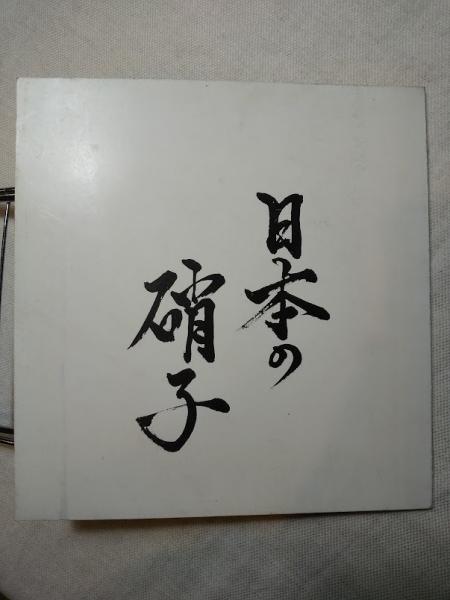 日本の
硝子